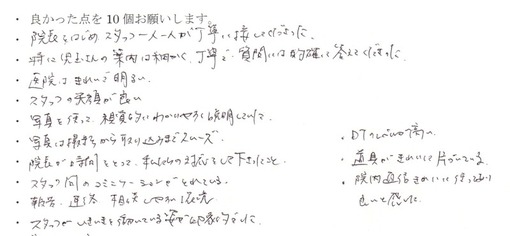 ・良かった点を10個お願いします。
・院長をはじめ、スタッフ一人一人が丁寧に接してくださった
・特に さんの案内は細かく、丁寧で、質問には的確に答えてくださった
・医院はきれいで明るい
・スタッフの笑顔が良い
・写真を使って、視覚的にわかりやすく説明していた
・写真は撮影から取り込みまでスムーズ
・院長が時間をとって、私たちの対応をして下さったこと
・スタッフ間のコミュニケーションがとれている
・報告、連絡、相談しやすい環境
・スタッフがいきいきと働いている姿が印象的でした
・DTのレベルの高い
・道具がきれいに片づいている
・院内通信きれいに
良いと思いました